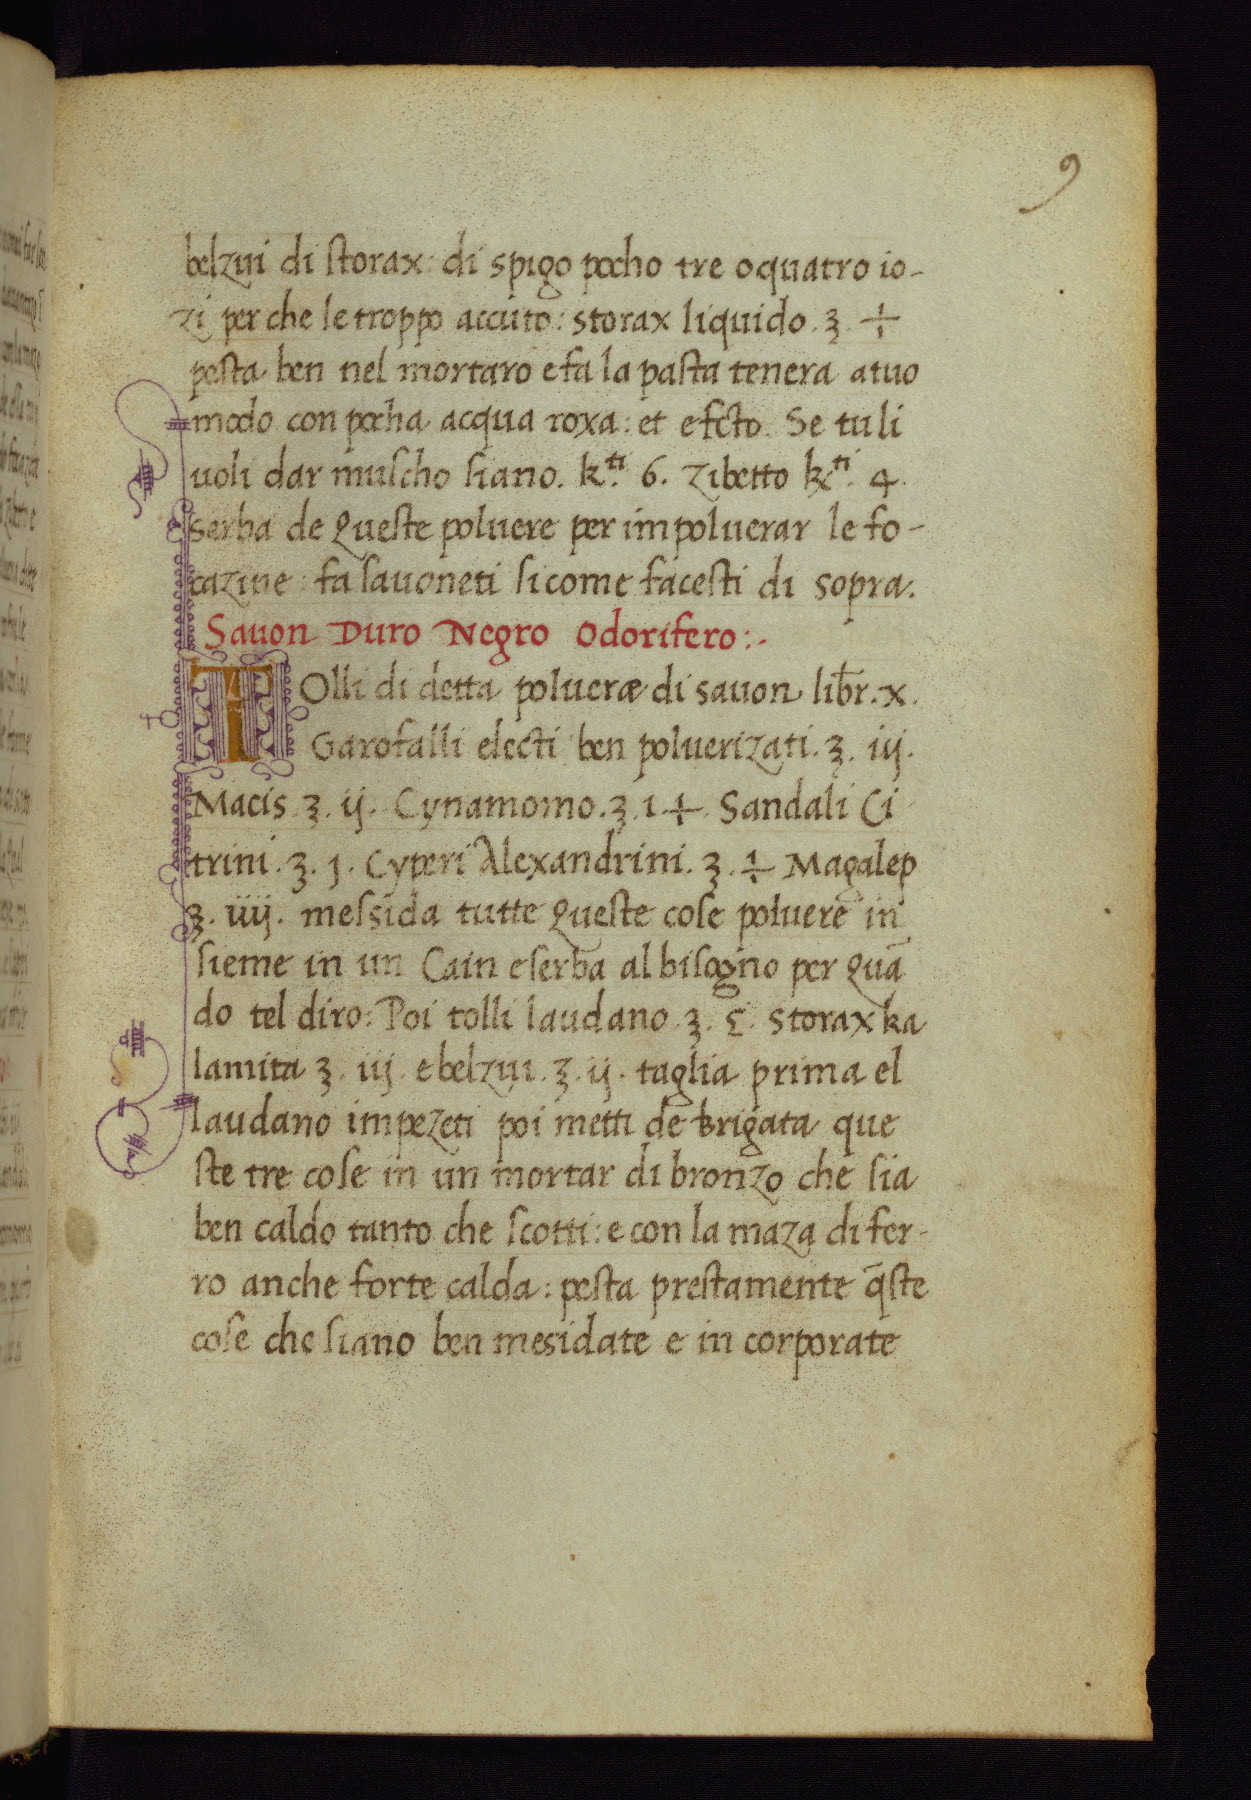 9
belzui di storax: di spigo pocho tre o quatro io-
zi per che le troppo accuto: storax liquido .ʒ. ÷
pesta ben nel mortaro e fa la pasta tenera a tuo
modo con pocha acqua roxa: et e fcto. Se tu li
uoli dar muscho siano. k.ti 6. zibetto k.ti 4.
serba de queste poluere per impoluerar le fo-
cazine: fa sauoneti si come facesti di sopra.
Sauon Duro Negro Odorifero:.
TOlli di detta polueræ di sauon libr. x.
Garofalli electi ben poluerizati. ʒ. iij.
Macis. ʒ. ij. Cynamomo. ʒ. 1 ÷ Sandali Ci
trini. ʒ. j. Cyperi Alexandrini. ʒ. ÷ Magalep
ʒ. iiij. messida tutte queste cose poluere in
sieme in un Cain e serba al bisogno per quā
do tel diro: Poi tolli laudano. ʒ. ς. storax ka
lamita ʒ. iij. e belzui. ʒ. ij. taglia prima el
laudano impezeti poi metti de brigata que
ste tre cose in un mortar di bronzo che sia
ben caldo tanto che scotti: e con la maza di fer-
ro anche forte calda: pesta prestamente q̄ste
cose che siano ben mesidate e in corporate